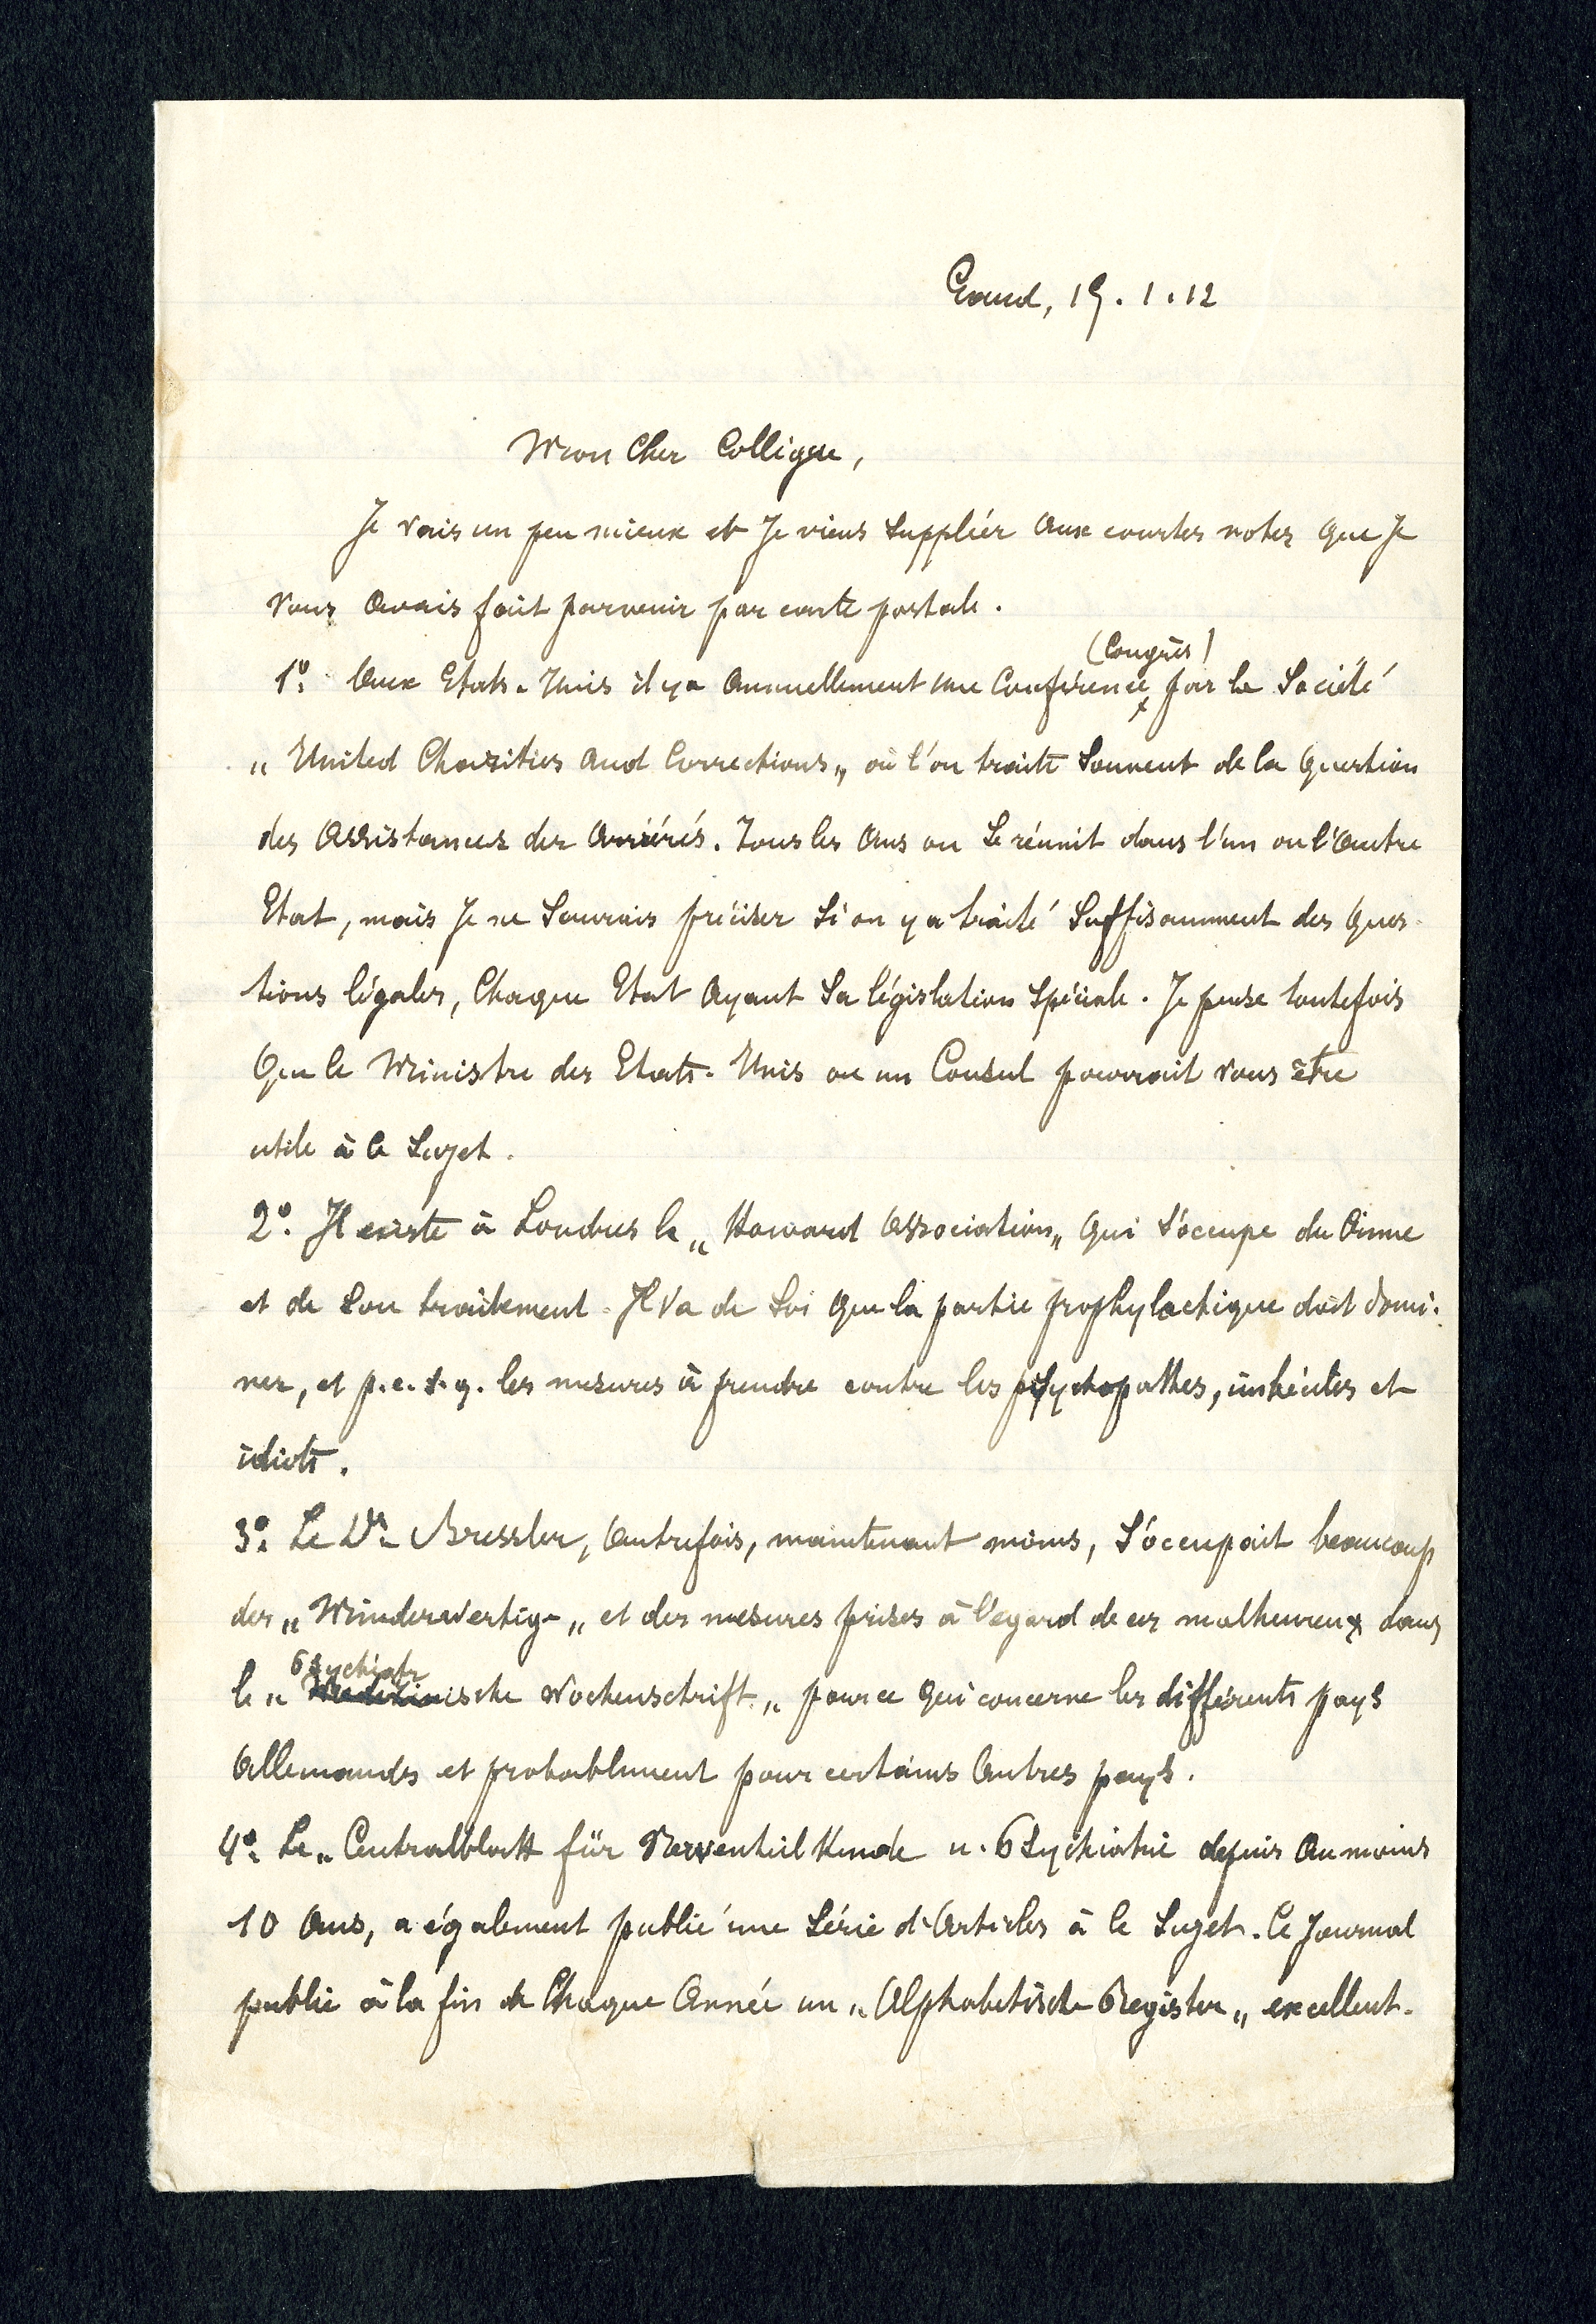 Gand, 19.1.12
Mon cher Collègue,
Je vais un peu mieux et je viens suppléer aux courtes notes que je
vous avais fait parvenir par carte postale.
(Congrès)
1º. Aux Etats-Unis il y a annuellement une Conférence par la Société
„ United Charities and Corrections „ où l'on traite souvent de la question
des assistances des arriérés. Tous les ans on se réunit dans l'un ou l'autre
Etat, mais je ne saurais préciser si on y a traité suffisamment des ques-
tions légales, chaque Etat ayant sa législation spéciale. Je pense toutefois
que le Ministre des Etats-Unis ou un Consul pourrait vous être
utile à ce sujet.
2º. Il existe à Londres la „ Howard Association „ qui s'occupe du Crime
et de son traitement. Il va de soi que la partie prophylactique doit domi-
ner, et p.c.s.q. les mesures à prendre contre les psychopathes, imbéciles et
idiots.
3º. Le Dr. Bressler, autrefois, maintenant moins, s'occupait beaucoup
des „ Minderwertige „ et des mesures prises à l'égard de ces malheureux dans
Psychiatr
la „ Medizinische Wochenschrift „ pour ce qui concerne les différents pays
Allemandes et probablement pour certains autres pays.
4º. Le „ Centralblatt für Nervenheilkunde u. Psychiatrie depuis au moins
10 ans, a également publié une série d'articles à ce sujet. Ce journal
publie à la fin de chaque année un „ Alphabetische Register „ excellent.